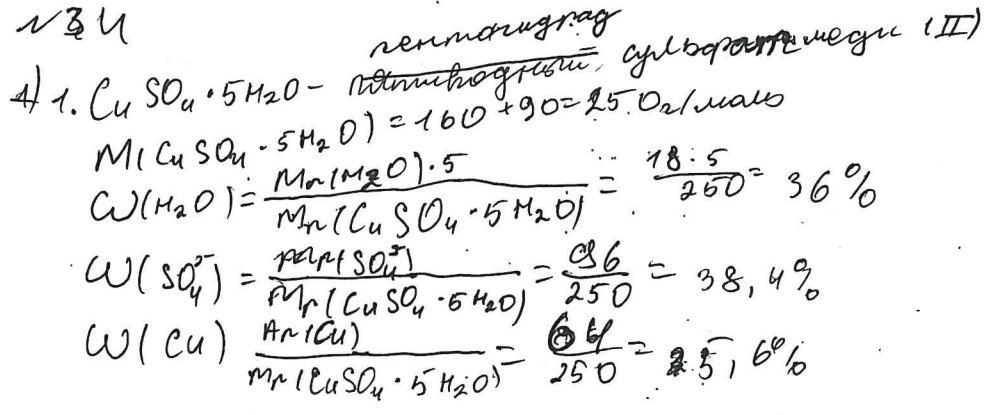 № 4
1) 1. CuSO₄ · 5H₂O – пентагидрад сульфат меди (II)
M(CuSO₄ · 5H₂O) = 160 + 90 = 250 г/моль
W(H₂O) = Mr(H₂O) · 5 / Mr(CuSO₄ · 5H₂O) = 18 · 5 / 250 = 36%
W(SO₄²⁻) = Mr(SO₄²⁻) / Mr(CuSO₄ · 5H₂O) = 96 / 250 = 38,4%
W(Cu) Ar(Cu) / Mr(CuSO₄ · 5H₂O) = 64 / 250 = 25,6%